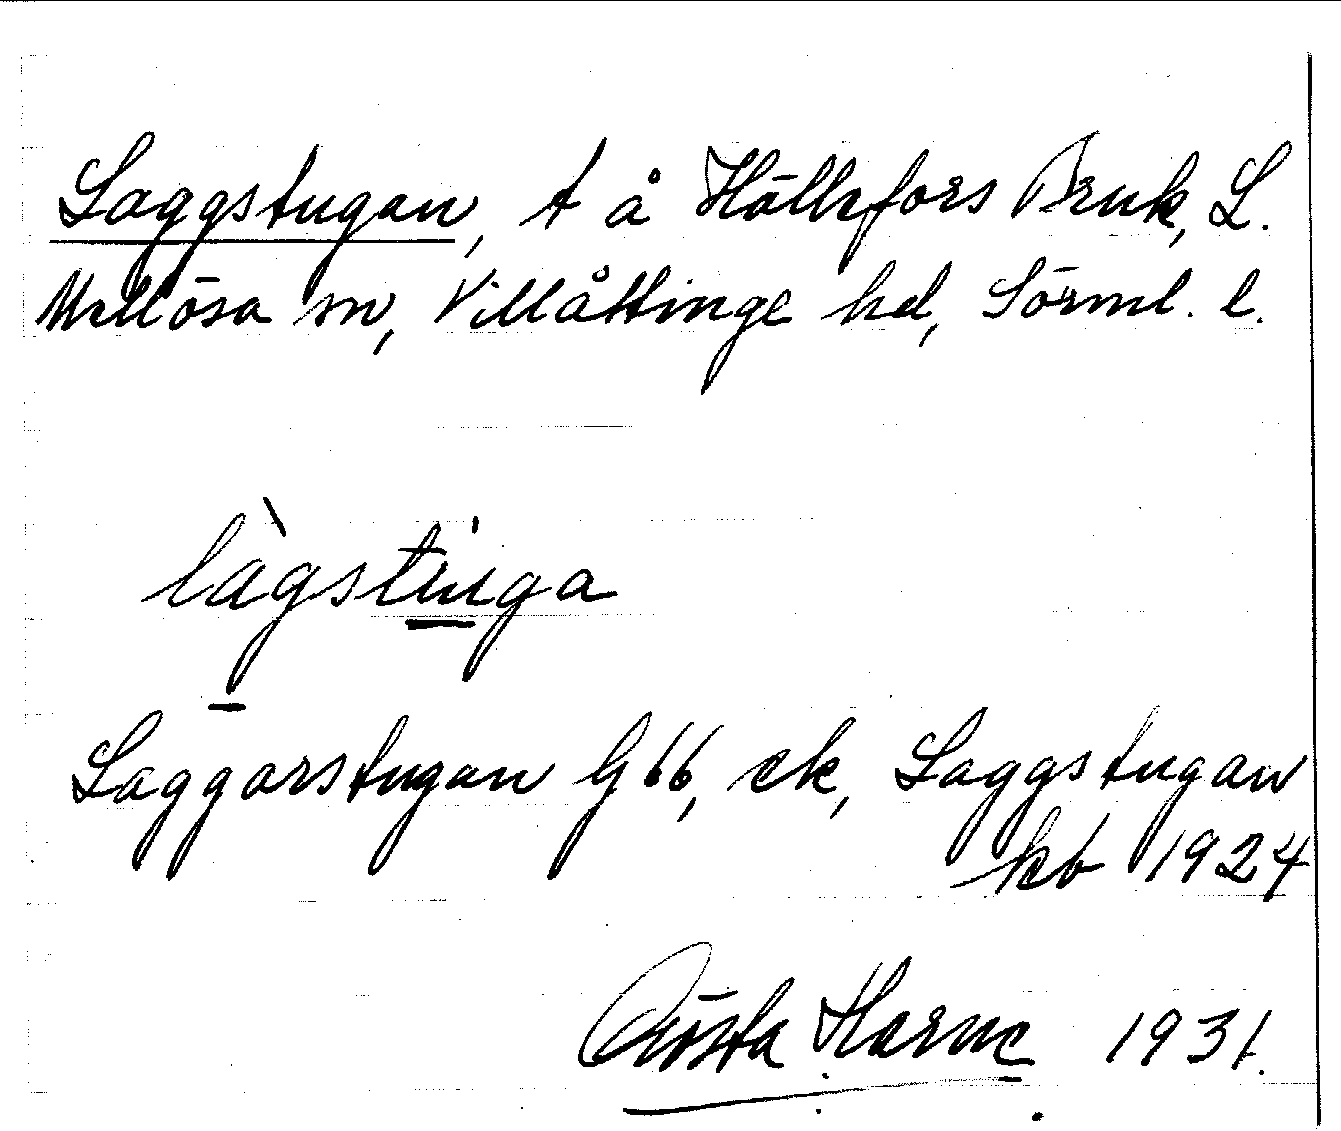 Laggstugan, t å Hällefors Bruk, L.
Mellösa sn, Villåttinge hd, Sörml. l.
làgstuga
Laggarstugan G 66, ek, Laggstugan
kb 1924
Gösta Harne 1931.